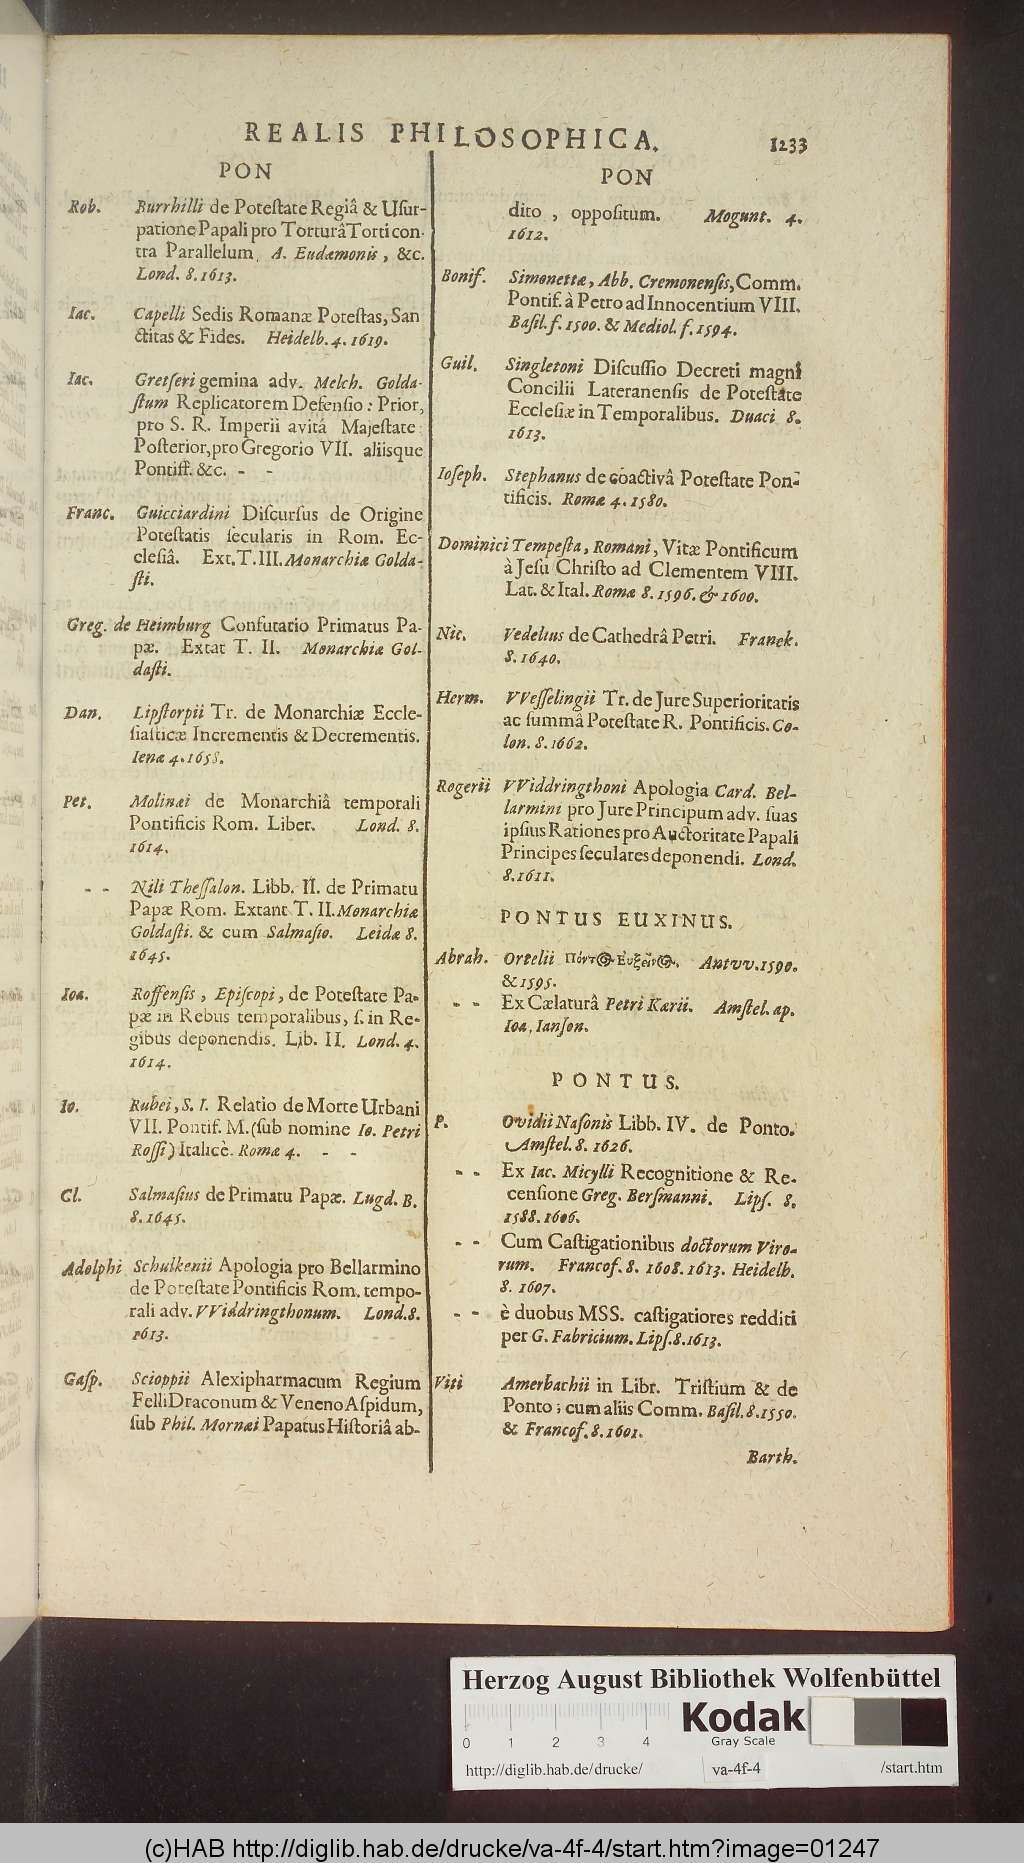 REALIS PHILOSOPHICA. 1233
PON
Rob. Burrhilli de Poteſtate Regiâ & Uſur-
patione Papali pro Torturâ Torti con-
tra Parallelum. A. Eudæmonis, &c.
Lond. 8. 1613.
Iac. Capelli Sedis Romanæ Poteſtas, San
ctitas & Fides. Heidelb. 4. 1619.
Iac. Gretſeri gemina adv. Melch. Golda-
ſtum Replicatorem Defenſio: Prior,
pro S. R. Imperii avitâ Majeſtate:
Poſterior, pro Gregorio VII. aliisque
Pontiff. &c. - -
Franc. Guicciardini Diſcurſus de Origine
Poteſtatis ſecularis in Rom. Ec-
cleſiâ. Ext. T. III. Monarchiæ Golda-
ſti.
Greg. de Heimburg Confutatio Primatus Pa-
pæ. Extat T. II. Monarchiæ Gol-
daſti.
Dan. Lipſtorpii Tr. de Monarchiæ Eccle-
ſiaſticæ Incrementis & Decrementis.
Ienæ 4. 1658.
Pet. Molinæi de Monarchiâ temporali
Pontificis Rom. Liber. Lond. 8.
1614.
- - Nili Theſſalon. Libb. II. de Primatu
Papæ Rom. Extant T. II. Monarchiæ
Goldaſti. & cum Salmaſio. Leidæ 8.
1645.
Ioa. Roffenſis, Epiſcopi, de Poteſtate Pa-
pæ in Rebus temporalibus, ſ. in Re-
gibus deponendis. Lib. II. Lond. 4.
1614.
Io. Rubei, S. I. Relatio de Morte Urbani
VII. Pontif. M. (ſub nomine Io. Petri
Roſſi) Italicè. Romæ 4. - -
Cl. Salmaſius de Primatu Papæ. Lugd. B.
8. 1645.
Adolphi Schulkenii Apologia pro Bellarmino
de Poteſtate Pontificis Rom. tempo-
rali adv. VViddringthonum. Lond. 8.
1613.
Gaſp. Scioppii Alexipharmacum Regium
Felli Draconum & Veneno Aſpidum,
ſub Phil. Mornæi Papatus Hiſtoriâ ab-
PON
dito, oppoſitum. Mogunt. 4.
1612.
Bonif. Simonettæ, Abb. Cremonenſis, Comm.
Pontif. à Petro ad Innocentium VIII.
Baſil. f. 1500. & Mediol. f. 1594.
Guil. Singletoni Diſcuſſio Decreti magni
Concilii Lateranenſis de Poteſtate
Eccleſiæ in Temporalibus. Duaci 8.
1613.
Ioſeph. Stephanus de coactivâ Poteſtate Pon-
tificis. Romæ 4. 1580.
Dominici Tempeſta, Romani, Vitæ Pontificum
à Jeſu Chriſto ad Clementem VIII.
Lat. & Ital. Romæ 8. 1596. & 1600.
Nic. Vedelius de Cathedrâ Petri. Franek.
8. 1640.
Herm. VVeſſelingii Tr. de Jure Superioritatis
ac ſummâ Poteſtate R. Pontificis. Co-
lon. 8. 1662.
Rogerii VViddringthoni Apologia Card. Bel-
larmini pro Jure Principum adv. ſuas
ipſius Rationes pro Auctoritate Papali
Principes ſeculares deponendi. Lond.
8. 1611.
PONTUS EUXINUS.
Abrah. Ortelii Πόντ⊙ Ευξεῖν⊙. Antvv. 1590.
& 1595.
- - Ex Cælaturâ Petri Kærii. Amſtel. ap.
Ioa. Ianſon.
PONTUS.
P. Ovidii Naſonis Libb. IV. de Ponto.
Amſtel. 8. 1626.
- - Ex Iac. Micylli Recognitione & Re-
cenſione Greg. Berſmanni. Lipſ. 8.
1588. 1606.
- - Cum Caſtigationibus doctorum Viro-
rum. Francof. 8. 1608. 1613. Heidelb.
8. 1607.
- - è duobus MSS. caſtigatiores redditi
per G. Fabricium. Lipſ. 8. 1613.
Viti Amerbachii in Libr. Triſtium & de
Ponto; cum aliis Comm. Baſil. 8. 1550.
& Francof. 8. 1601.
Barth.
Herzog August Bibliothek Wolfenbüttel
0 1 2 3 4
Kodak
Gray Scale
http://diglib.hab.de/drucke/ va-4f-4 /start.htm
(c)HAB http://diglib.hab.de/drucke/va-4f-4/start.htm?image=01247